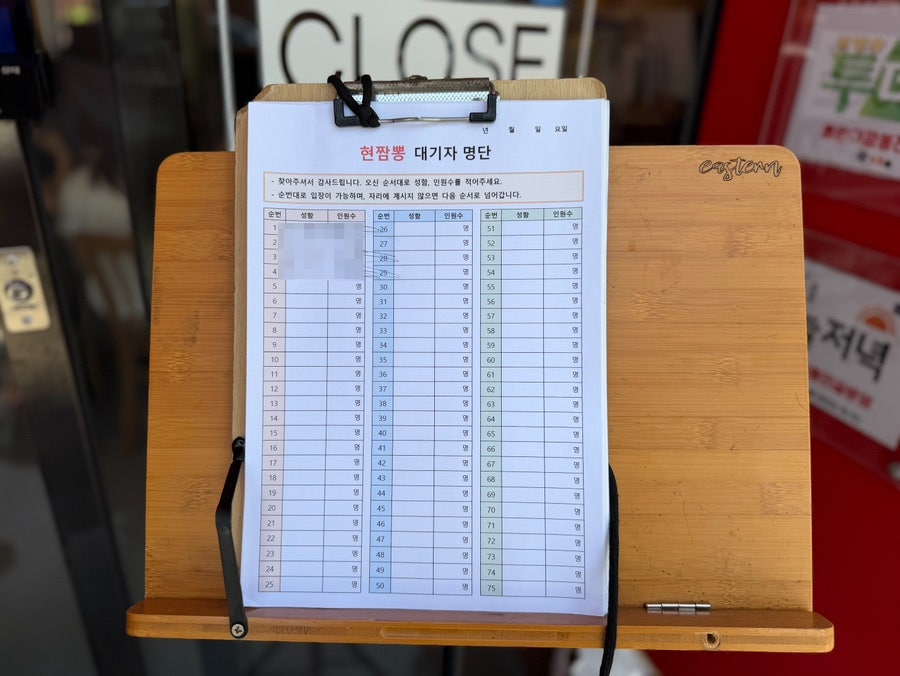 CLOSE
년 월 일 요일
현짬뽕 대기자 명단
- 찾아주셔서 감사드립니다. 오신 순서대로 성함, 인원수를 적어주세요.
- 순번대로 입장이 가능하며, 자리에 계시지 않으면 다음 순서로 넘어갑니다.
eastern
순번 성함 인원수 순번 성함 인원수 순번 성함 인원수
1 26 명 51 명
2 27 명 52 명
3 28 명 53 명
4 29 명 54 명
5 명 30 명 55 명
6 명 31 명 56 명
7 명 32 명 57 명
8 명 33 명 58 명
9 명 34 명 59 명
10 명 35 명 60 명
11 명 36 명 61 명
12 명 37 명 62 명
13 명 38 명 63 명
14 명 39 명 64 명
15 명 40 명 65 명
16 명 41 명 66 명
17 명 42 명 67 명
18 명 43 명 68 명
19 명 44 명 69 명
20 명 45 명 70 명
21 명 46 명 71 명
22 명 47 명 72 명
23 명 48 명 73 명
24 명 49 명 74 명
25 명 50 명 75 명
저녁